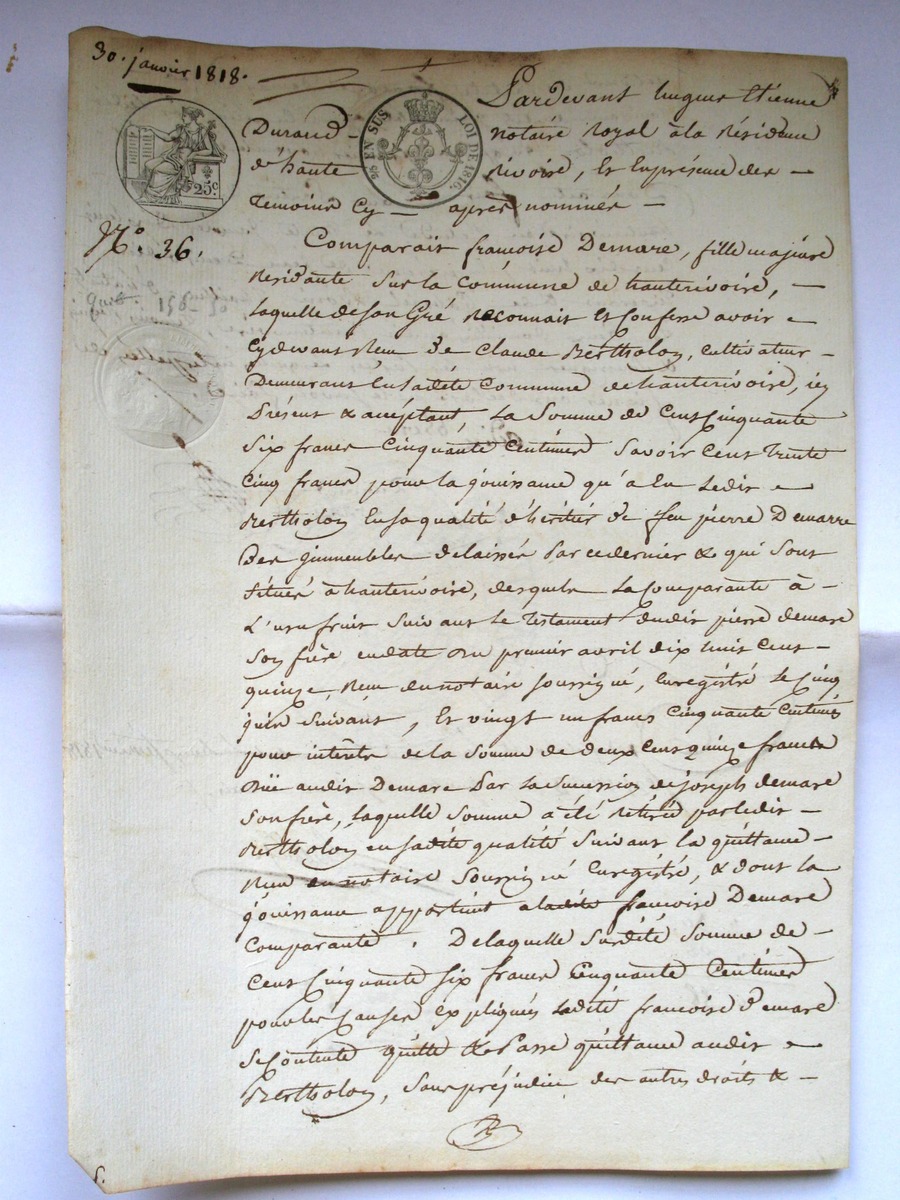 30. janvier 1818.
Pardevant hugues Etienne
Durand notaire Royal à la Résidence
d'haute rivoire, Et En présence des
Temoins Cy après nommés
25c.
25 EN SUS LOI DE 1816.
N.° 36.
Comparait françoise Demare, fille majeure
Residante Sur la Commune de hauterivoire,
laquelle de son Gré Reconnait Et Confesse avoir
Cydevant Reçu de Claude Bertholon, Cultivateur
Demeurant En Sadite Commune de hauterivoire, icy
présent & acceptant, La Somme de Cent Cinquante
Six francs Cinquante Centimes Savoir Cent Trente
Cinq francs pour la jouissance qu'a Eu Ledit
Bertholon En sa qualité d'héritier de feu pierre Demarre
Des immeubles delaissés par ce dernier & qui Sont
Situés à hauterivoire, desquels La Comparante à
L'usufruit Suivant Le Testament dudit pierre demare
Son frère en date du premier avril dix huit Cent
quinze, Reçu du notaire soussigné, Enregistré Le Cinq
juin Suivant, Et vingt un francs Cinquante Centimes
pour intérêts de la Somme de deux Cent quinze francs
düe audit Demare par La Succession de joseph demare
Son frère, Laquelle Somme a été Retirée par ledit
Bertholon en sadite qualité Suivant la quittance
Reçu du notaire Soussigné Enregistré, & dont la
jouissance appartient a ladite françoise Demare
Comparante. De laquelle Susdite Somme de
Cent Cinquante Six francs Cinquante Centimes
pour les Causes Expliqués Ladite françoise demare
Se Contente quitte & Passe quittance audit
Bertholon, Sans préjudice des autres droits &